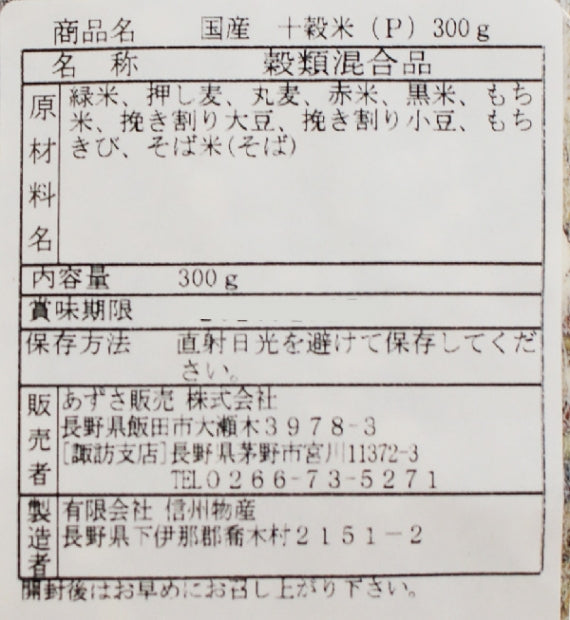 商品名 国産 十穀米（P）300g
名称 穀類混合品
原材料名 緑米、押し麦、丸麦、赤米、黒米、もち
米、挽き割り大豆、挽き割り小豆、もち
きび、そば米(そば)
内容量 300g
賞味期限
保存方法 直射日光を避けて保存してくだ
さい。
販売者 あずさ販売 株式会社
長野県飯田市大瀬木3978-3
[諏訪支店]長野県茅野市宮川11372-3
TEL0266-73-5271
製造者 有限会社 信州物産
長野県下伊那郡喬木村2151-2
開封後はお早めにお召し上がり下さい。